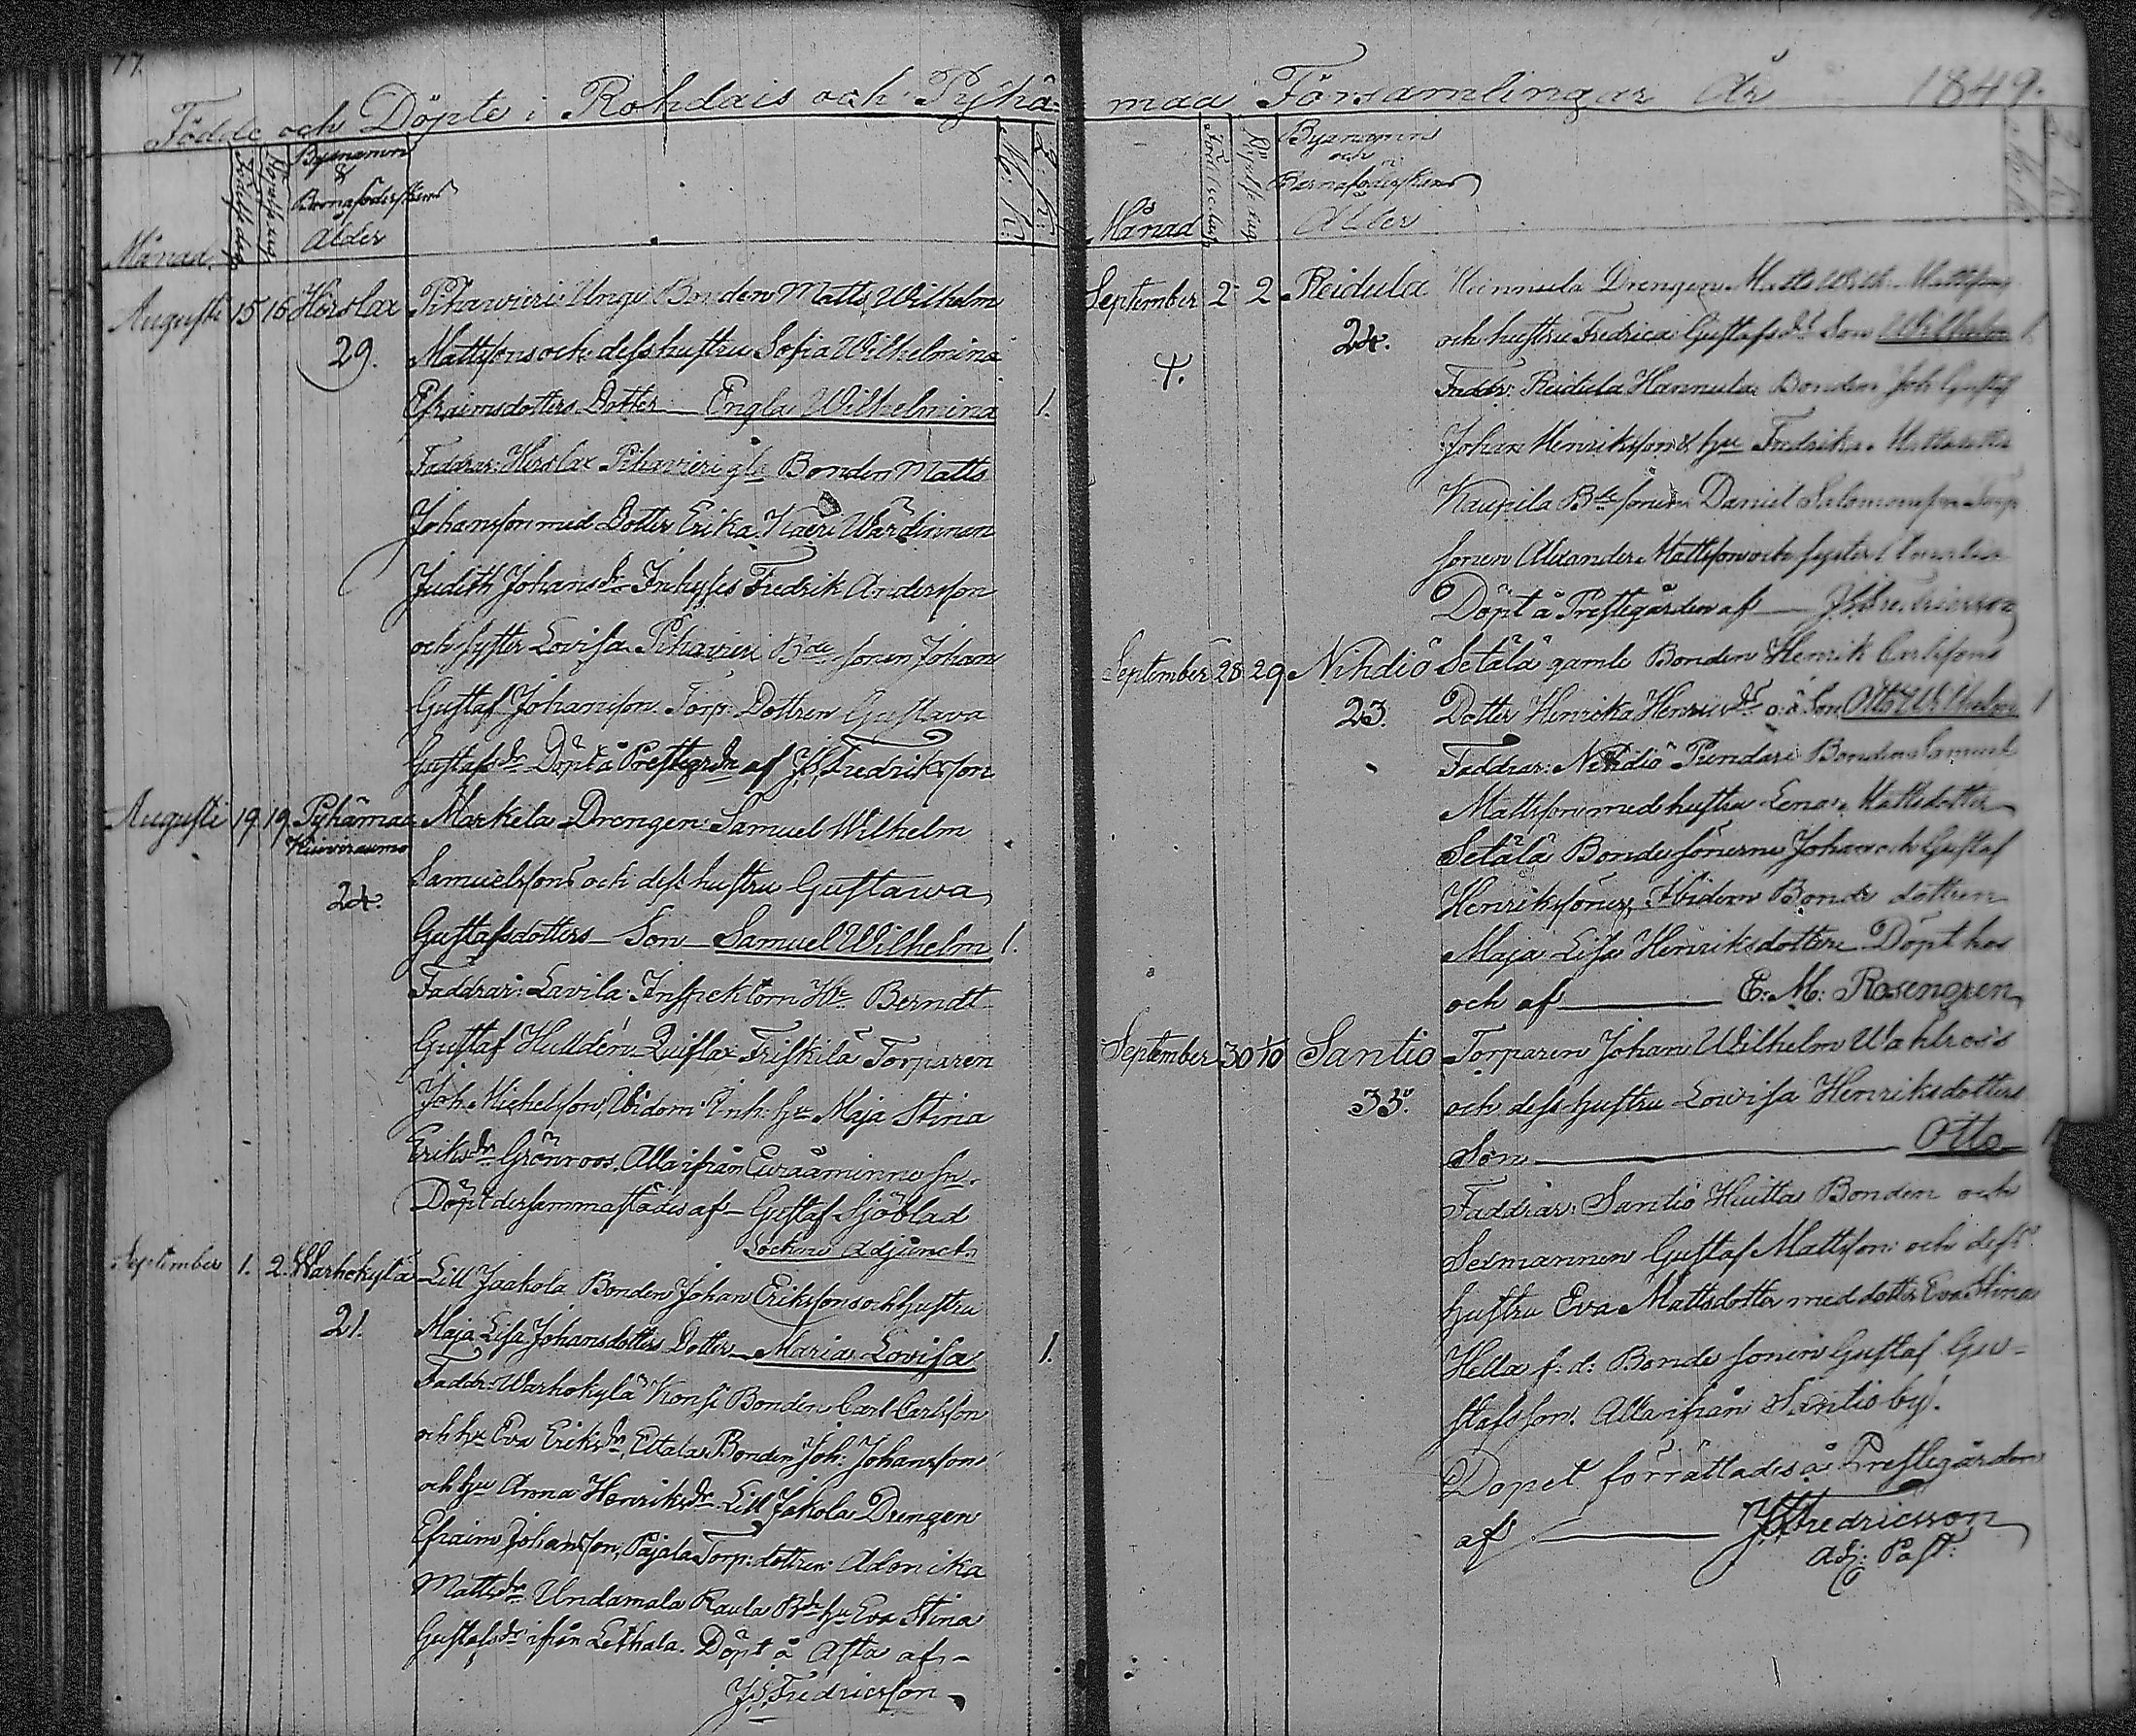 77.
Födde och Döpte i Rohdais och Pyhä-
Månad.
Födelsedag
Byanamn
&
Barnaföderskens
Ålder
M. K.
Q. K.
Augusti 15 16 Hirslax Pihawieri Unge Bonden Matts Wilhelm
29. Mattssons och dess hustru Sofia Wilhelmina
Efraimsdotters Dotter Engla Wilhelmina 1.
Faddrar: Hirslax Pihavieri gla Bonden Matts
Johansson med Dotter Erika Wärdinnan
Judith Johansdr Inhyses Fredrik Andersson
och syster Lovisa Pihavieri Bde sonen Johan
Gustaf Johansson. Torp: Dottren Gustava
Gustafsdr Döpt å Prestegrdn af J. S. Fredriksson
Augusti 19. 19. Pyhämaa Markela Drengen Samuel Wilhelm
24. Samuelssons och dess hustru Gustawa
Gustafsdotters Son Samuel Wilhelm 1.
Faddrar: Lavila: Inspektorn Hr Berndt
Gustaf Hulldén Friskilä Torparen
Joh. Michelsson, Ibidem Inh: hu Maja Stina
Eriksdr Grönroos. Alla ifrån Euraåminne sn.
Döpt dersammastädes af Gustaf Sjöblad
Sockne Adjunct.
September 1. 2. Warhokylä Lill Jaakola Bonden Johan Erikssons och hustru
21. Maja Lisa Johansdotters Dotter Maria Lovisa 1.
Faddr: Warhokylä Konsi Bonden Carl Carlsson
och hu Eva Eriksdr, Eltala Bonden Joh: Johansson
och hu Anna Henriksdr Lill Jakola Drengen
Efraim Johansson, Pajala Torp: dottren Adonika
Mattsdr Undamala Raula Bde hu Eva Stina
Gustafsdr ifrån Lethala. Döpt å Asta af
J. S. Fredricsson
maa Församlingar År 1849.
Månad
Födelsedag
Byanamn
och
Barnaföderskens
Ålder
September 2 2 Reidula Hannula Drengen Matts Wilh. Mattssons
24. och hustru Fredrica Gustafsdrs Son Wilhelm 1
Faddr: Reidula Hannula Bonden Joh Gustaf
Johan Henriksson & hu Fredrika Mattsdotter
Kaupila Bde sonen Daniel Salomonsson
sonen Alexander Mattsson och syster
Döpt å Prestegården af J. S. Fredricsson
September 28 29 Nihdiö Setälä gamle Bonden Henrik Carlssons
23. Dotter Henrika Henricsdrs o: ä Son Otto Wilhelm 1
Faddrar: Nihdiö Pundari Bonden Samuel
Mattsson med hustru Lena Mattsdotter
Setälä Bondesönerne Johan och Gustaf
Henrikssöner, Ibidem Bonde dottren
Maja Lisa Henriksdotter Döpt hos
och af E: M: Rosengren
September 30 Santio Torparen Johan Wilhelm Wahlroos
35. och dess hustru Lowisa Henriksdotters
Son Otto 1
Faddrar: Santio Huitta Bonden och
Sexmannen Gustaf Mattsson och dess
hustru Eva Mattsdotter med dotter Eva Stina
Hella f: d: Bonde sonen Gustaf Gu-
stafsson. Alla ifrån Santio by.
Dopet förrättades å Prestegården
af J. S. Fredricsson
Adj: Past: